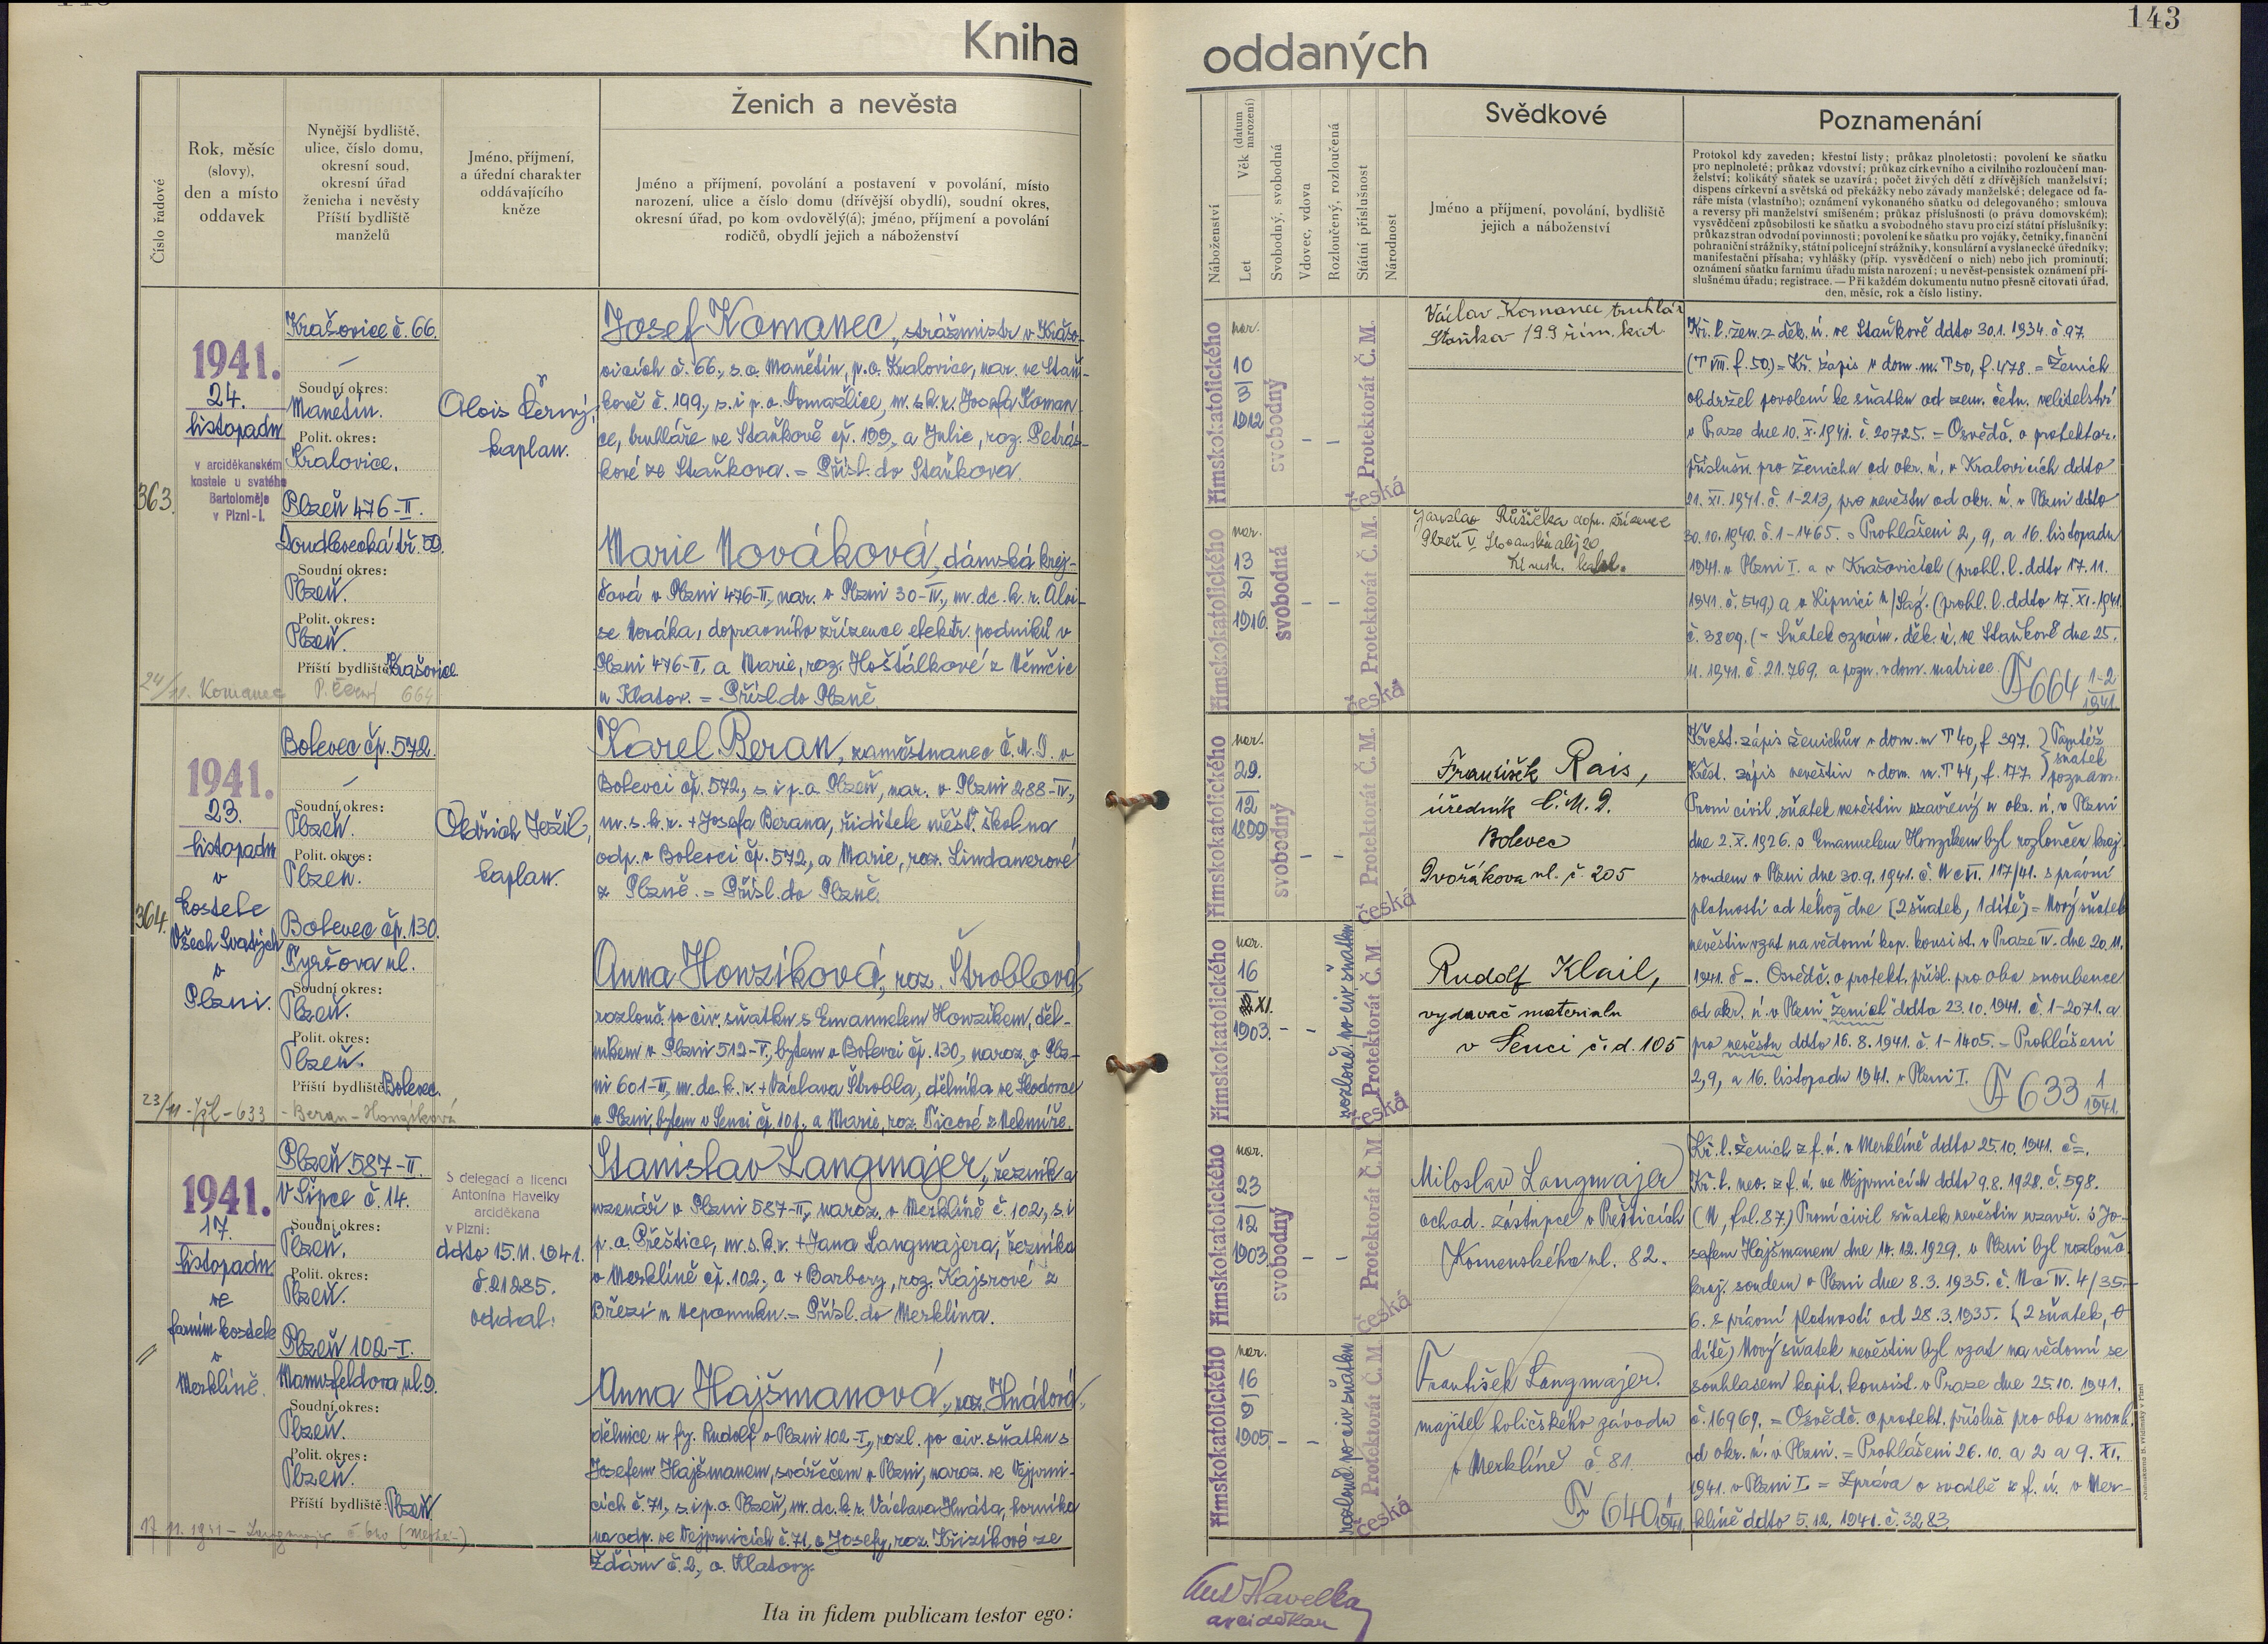 143
Kniha
oddaných
Číslo řadové
Rok, měsíc
(slovy),
den a místo
oddavek
Nynější bydliště,
ulice, číslo domu,
okresní soud,
okresní úřad
ženicha i nevěsty
Příští bydliště
manželů
Jméno, příjmení,
a úřední charakter
oddávajícího
kněze
Ženich a nevěsta
Jméno a příjmení, povolání a postavení v povolání, místo
narození, ulice a číslo domu (dřívější obydlí), soudní okres,
okresní úřad, po kom ovdovělý(á); jméno, příjmení a povolání
rodičů, obydlí jejich a náboženství
Náboženství
Věk (datum narození)
Let
Svobodný, svobodná
Vdovec, vdova
Rozloučený, rozloučená
Státní příslušnost
Národnost
Svědkové
Jméno a příjmení, povolání, bydliště
jejich a náboženství
Poznamenání
Protokol kdy zaveden; křestní listy; průkaz plnoletosti; povolení ke sňatku
pro neplnoleté; průkaz vdovství; průkaz církevního a civilního rozloučení man-
želství; kolikátý sňatek se uzavírá; počet živých dětí z dřívějších manželství;
dispens církevní a světská od překážky nebo závady manželské; delegace od fa-
ráře místa (vlastního); oznámení vykonaného sňatku od delegovaného; smlouva
a reversy při manželství smíšeném; průkaz příslušnosti (o právu domovském);
vysvědčení způsobilosti ke sňatku a svobodného stavu pro cizí státní příslušníky;
průkaz stran odvodní povinnosti; povolení ke sňatku pro vojáky, četníky, finanční
pohraniční strážníky, státní policejní strážníky, konsulární a vyslanecké úředníky;
manifestační přísaha; vyhlášky (příp. vysvědčení o nich) nebo jich prominutí;
oznámení sňatku farnímu úřadu místa narození; u nevěst-pensistek oznámení pří-
slušnému úřadu; registrace. — Při každém dokumentu nutno přesně citovati úřad,
den, měsíc, rok a číslo listiny.
363.
1941.
24.
listopadu
v arciděkanském
kostele u svatého
Bartoloměje
v Plzni-I.
Krašovice č. 66.
Soudní okres:
Manětín.
Polit. okres:
Kralovice.
Plzeň 476-II.
Doudlevecká tř. 59.
Soudní okres:
Plzeň.
Polit. okres:
Plzeň.
Příští bydliště: Krašovice.
24/11. Komanec P. Černý 664
Alois Černý,
kaplan.
Josef Komanec, strážmistr v Krašo-
vicích č. 66., s.o. Manětín, p.o. Kralovice, nar. ve Staň-
kově č. 199., s. i p. o. Domažlice, m. s. k. r. Josefa Koman-
ce, truhláře ve Staňkově čp. 199., a Julie, roz. Petrás-
kové ze Staňkova. = Přísl. do Staňkova.
Marie Nováková, dámská krej-
čová v Plzni 476-II., nar. v Plzni 30-IV., m. dc. k. r. Aloi-
se Nováka, dopravního zřízence elektr. podniků v
Plzni 476-II. a Marie, roz. Hošťálkové z Němčic
u Klatov. = Přísl. do Plzně.
římskokatolického
nar.
10
3
1912
svobodný
Protektorát Č. M.
česká
Václav Komanec truhlář
Staňkov 199 řím. kat.
římskokatolického
nar.
13
2
1916.
svobodná
Protektorát Č. M.
česká
Jaroslav Růžička dopr. zřízenec
Plzeň V Slovanská alej 20
Kř. l. žen. z děk. ú. ve Staňkově ddto 30.1. 1934. č. 97.
(T VIII. f. 50.) = Kř. zápis v dom. m. T 50, f. 478. = Ženich
obdržel povolení ke sňatku od zem. četn. velitelství
v Praze dne 10. X. 1941. č. 20725. = Osvědč. o protektor.
příslušn. pro ženicha od okr. ú. v Kralovicích ddto
21. XI. 1941. č. 1-213, pro nevěstu od okr. ú. v Plzni ddto
30.10.1940. č. 1-1465. = Prohlášení 2., 9., a 16. listopadu
1941. v Plzni I. a v Krašovicích (prohl. l. ddto 17.11.
1941. č. 549.) a v (prohl. l. ddto 17. XI. 1941.
č. 3809. (= Sňatek oznám. děk. ú. ve Staňkově dne 25.
11. 1941. č. 21.769. a pozn. v dom. matrice.
F 664 1-2
1941
364.
1941.
23.
listopadu
v
kostele
Všech Svatých
v
Plzni.
Bolevec čp. 572.
Soudní okres:
Plzeň.
Polit. okres:
Plzeň.
Bolevec čp. 130.
Tyršova ul.
Soudní okres:
Plzeň.
Polit. okres:
Plzeň.
Příští bydliště: Bolevec.
23/11 - - 633 - Beran - Honzíková
Oldřich Ježil,
kaplan.
Karel Beran, zaměstnanec Č.M.D. v
Bolevci čp. 572., s. i p. o. Plzeň, nar. v Plzni 288-IV.,
m. s. k. r. + Josefa Berana, ředitele měšť. škol na
odp. v Bolevci čp. 572, a Marie, roz. Lindauerové
z Plzně. = Přísl. do Plzně.
Anna Honzíková, roz. Stroblová,
rozlouč. po civ. sňatku s Emanuelem Honzíkem, děl-
níkem v Plzni 512-V., bytem v Bolevci čp. 130., naroz. v Plz-
ni 601-III., m. dc. k. r. + Václava Strobla, dělníka ve Škodovce
v Plzni, bytem v Senci čp. 101., a Marie, roz. Ticové z Nekmíře.
římskokatolického
nar.
29.
12
1899
svobodný
Protektorát Č. M.
česká
František Rais,
úředník Č.M.D.
Bolevec
Dvořákova ul. č. 205
římskokatolického
nar.
16
XI.
1903.
rozlouč. po civ. sňatku
Protektorát Č. M
česká
Rudolf Klail,
vydavač materialu
v Senci č.d. 105
Křest. zápis ženichův v dom. m. T 40, f. 397. } Tamtéž
Křest. zápis nevěstin v dom. m. T 44, f. 177. } sňatek poznam.
První civil. sňatek nevěstin uzavřený u okr. ú. v Plzni
dne 2. X. 1926. s Emanuelem Honzíkem byl rozloučen kraj.
soudem v Plzni dne 30.9. 1941. č. Nc VI. 117/41. s právní
platností od téhož dne [2 sňatek, 1 dítě] = Nový sňatek
nevěstin vzat na vědomí kap. konsist. v Praze IV. dne 20.11.
1941. č -. Osvědč. o protekt. přísl. pro oba snoubence
od okr. ú. v Plzni "ženich" ddto 23.10. 1941. č. 1-2071. a
pro nevěstu ddto 16.8.1941. č. 1-1405. = Prohlášení
2., 9., a 16. listopadu 1941. v Plzni I.
F 633 1
1941.
//
1941.
17.
listopadu
ve
farním kostele
v
Merklíně.
Plzeň 587-II.
V Šipce č. 14.
Soudní okres:
Plzeň.
Polit. okres:
Plzeň.
Plzeň 102-I.
Mannsfeldova ul. 9.
Soudní okres:
Plzeň.
Polit. okres:
Plzeň.
Příští bydliště: Plzeň.
S delegací a licencí
Antonína Havelky
arciděkana
v Plzni:
ddto 15.11.1941.
č. 21285.
oddal:
Stanislav Langmajer, řezník a
uzenář v Plzni 587-II., naroz. v Merklíně č. 102., s. i
p. o. Přeštice, m. s. k. r. + Jana Langmajera, řezníka
v Merklíně čp. 102., a + Barbory, roz. Kajsrové z
Březí u Nepomuku. = Přísl. do Merklína.
Anna Hajšmanová, roz. Hnátová,
dělnice u fy. Rudolf v Plzni 102-I., rozl. po civ. sňatku s
Josefem Hajšmanem, svářečem v Plzni, naroz. ve Vejprni-
cích č. 71., s. i p. o. Plzeň, m. dc. k. r. Václava Hnáta, horníka
na odp. ve Vejprnicích č. 71, a Josefy, roz. Křížíkové ze
Ždáru č. 2., o. Klatovy.
římskokatolického
nar.
23
12
1903
svobodný
Protektorát Č. M
česká
Miloslav Langmajer
obchod. zástupce v Přešticích
Komenského ul. 82.
římskokatolického
nar.
16
9
1905.
rozlouč. po civ. sňatku
Protektorát Č. M
česká
František Langmajer.
majitel holičského závodu
v Merklíně č. 81.
F 640
1941.
Kř. l. ženich z f. ú. v Merklíně ddto 25.10.1941. č=.
Kř. l. nev. z f. ú. ve Vejprnicích ddto 9.8. 1928. č. 598.
(N, fol. 87.) První civil sňatek nevěstin uzavř. s Jo-
sefem Hajšmanem dne 14.12.1929. v Plzni byl rozlouč.
kraj. soudem v Plzni dne 8.3.1935. č. Nc IV. 4/35.-
6. s právní platností od 28.3.1935. (2 sňatek, 0
dítě) Nový sňatek nevěstin byl vzat na vědomí se
souhlasem kapit. konsist. v Praze dne 25.10. 1941.
č. 16969. = Osvědč. o protekt. přísluš. pro oba snoub.
od okr. ú. v Plzni. = Prohlášení 26.10. a 2. a 9. XI.
1941. v Plzni I. = Zpráva o svatbě z f. ú. v Mer-
klíně ddto 5.12. 1941. č. 3283.
Ita in fidem publicam testor ego:
Ant Havelka
arciděkan